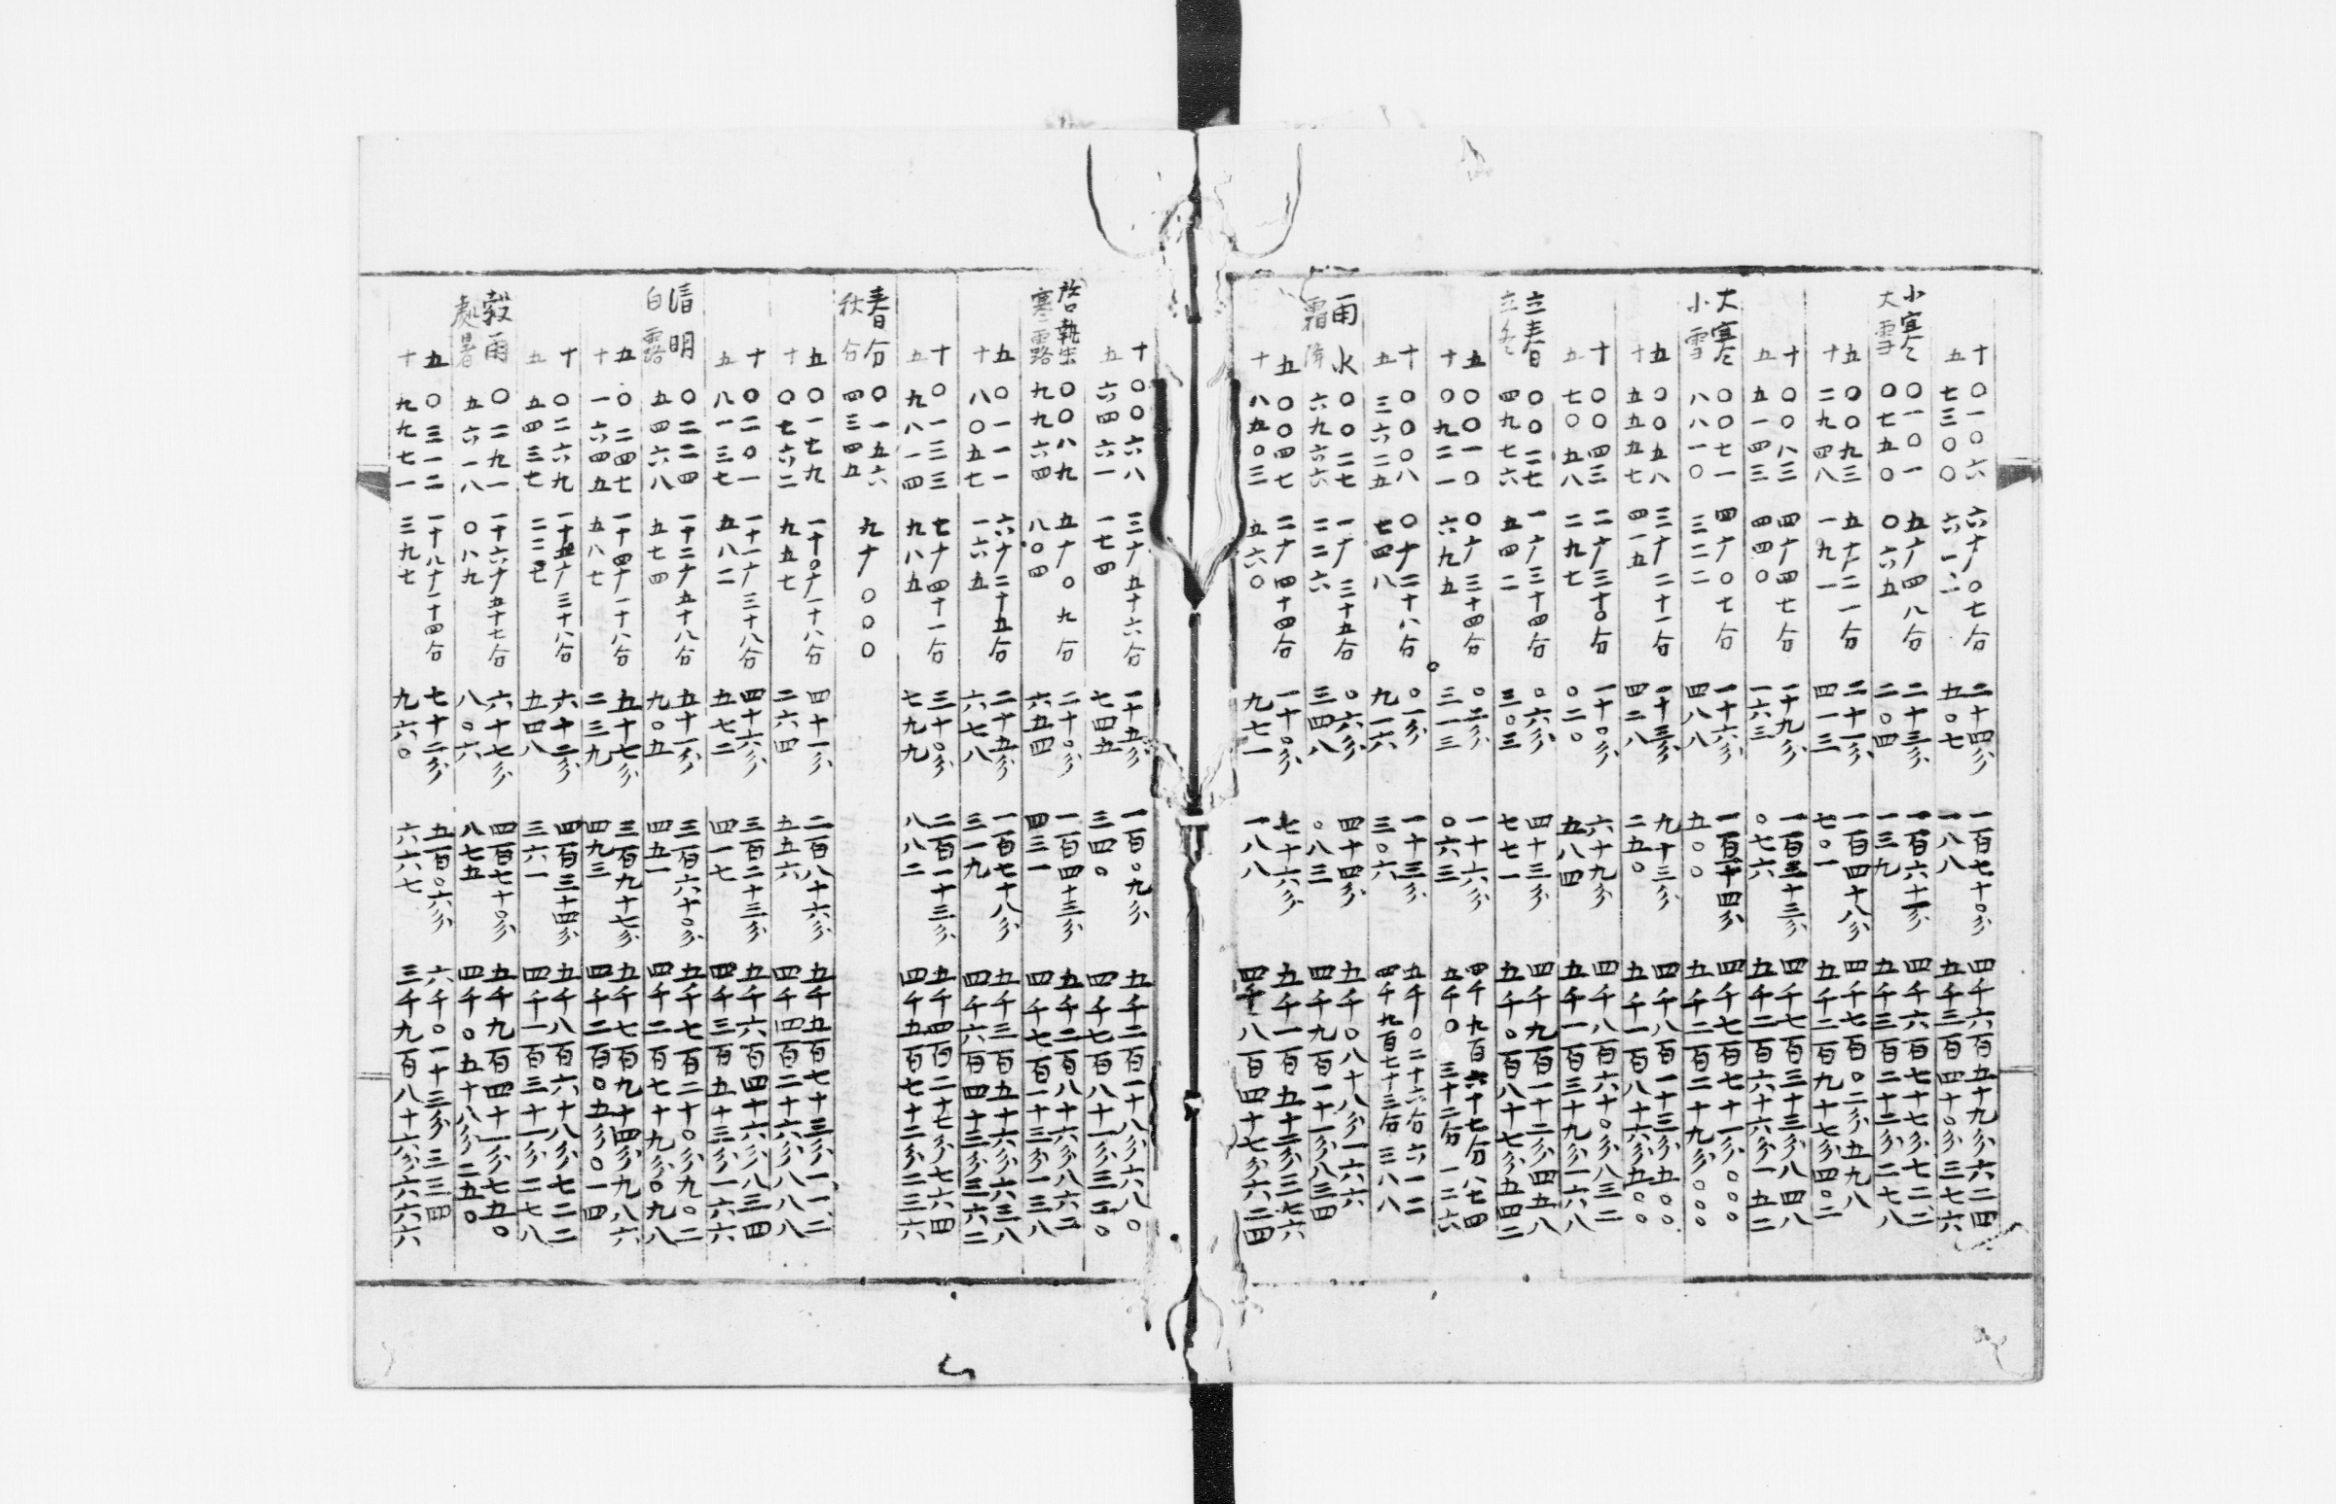 十 〇一〇六 六广〇七分 二十四分 一百七十〇分 四千六百五十九分六二四
五 七三〇〇 六一二 五〇七 一八八 五千三百四十〇分三七六
小寒 〇一〇一 五广四八分 二十三分 一百六十一分 四千六百七十七分七二二
大雪 〇七五〇 〇六五 二〇四 一三九 五千三百二十二分二七八
五 〇〇九三 五广二一分 二十一分 一百四十八分 四千七百〇二分五九八
十 二九四八 一九一 四一三 七〇一 五千二百九十七分四〇二
十 〇〇八三 四广四七分 一十九分 一百三十三分 四千七百三十三分八四八
五 五一四三 四四〇 一六三 〇七六 五千二百六十六分一五二
大寒 〇〇七一 四广〇七分 一十六分 一百一十四分 四千七百七十一分〇〇〇
小雪 八八一〇 三二二 四八八 五〇〇 五千二百二十九分〇〇〇
五 〇〇五八 三广二十一分 一十三分 九十三分 四千八百一十三分五〇〇
十 五五五七 四一五 四二八 二五〇 五千一百八十六分五〇〇
十 〇〇四三 二广三十〇分 一十〇分 六十九分 四千八百六十〇分八三二
五 七〇五八 二九七 〇二〇 五八四 五千一百三十九分一六八
立春 〇〇二七 一广三十四分 〇六分 四十三分 四千九百一十二分四五八
立冬 四九七六 五四二 三〇三 七七一 五千〇百八十七分五四二
五 〇〇一〇 〇广三十四分 〇二分 一十六分 四千九百六十七分八七四
十 〇九二一 六九五 三一三 〇六三 五千〇三十二分一二六
十 〇〇〇八 〇广二十八分 〇一分 一十三分 五千〇二十六分六一二
五 三六二五 七四八 九一六 三〇六 四千九百七十三分三八八
雨水 〇〇二七 一广三十五分 〇六分 四十四分 五千〇八十八分一六六
霜降 六九六六 二二六 三四八 〇八三 四千九百一十一分八三四
五 〇〇四七 二广四十四分 一十〇分 七十六分 五千一百五十二分三七六
十 八五〇三 五六〇 九七一 一八八 四千八百四十七分六二四
十 〇〇六八 三广五十六分 一十五分 一百〇九分 五千二百一十八分六八〇
五 六四六一 一七四 七四五 三四〇 四千七百八十一分三二〇
啓蟄 〇〇八九 五广〇九分 二十〇分 一百四十三分 五千二百八十六分八六二
寒露 九九六四 八〇四 六五四 四三一 四千七百一十三分一三八
五 〇一一一 六广二十五分 二十五分 一百七十八分 五千三百五十六分六三八
十 八〇五七 一六五 六七八 三一九 四千六百四十三分三六二
十 〇一三三 七广四十一分 三十〇分 二百一十三分 五千四百二十七分七六四
五 九八一四 九八五 七九九 八八二 四千五百七十二分二三六
春分 〇一五六 九广〇〇〇
秋分 四三四五
五 〇一七九 一十〇广一十八分 四十一分 二百八十六分 五千五百七十三分一一二
十 〇七六二 九五七 二六四 五五六 四千四百二十六分八八八
十 〇二〇一 一十一广三十八分 四十六分 三百二十三分 五千六百四十六分八三四
五 八一三七 五八二 五七二 四一七 四千三百五十三分一六六
清明 〇二二四 一十二广五十八分 五十一分 三百六十〇分 五千七百二十〇分九〇二
白露 五四六八 五七四 九〇五 四五一 四千二百七十九分〇九八
五 〇二四七 一十四广一十八分 五十七分 三百九十七分 五千七百九十四分九八六
十 一六四五 五八七 二三九 四九三 四千二百〇五分〇一四
十 〇二六九 一十五广三十八分 六十二分 四百三十四分 五千八百六十八分七二二
五 五四三七 二二七 五四八 三六一 四千一百三十一分二七八
穀雨 〇二九一 一十六广五十七分 六十七分 四百七十〇分 五千九百四十一分七五〇
處暑 五六一八 〇八九 八〇六 八七五 四千〇五十八分二五〇
五 〇三一二 一十八广一十四分 七十二分 五百〇六分 六千〇一十三分三三四
十 九九七一 三九七 九六〇 六六七 三千九百八十六分六六六